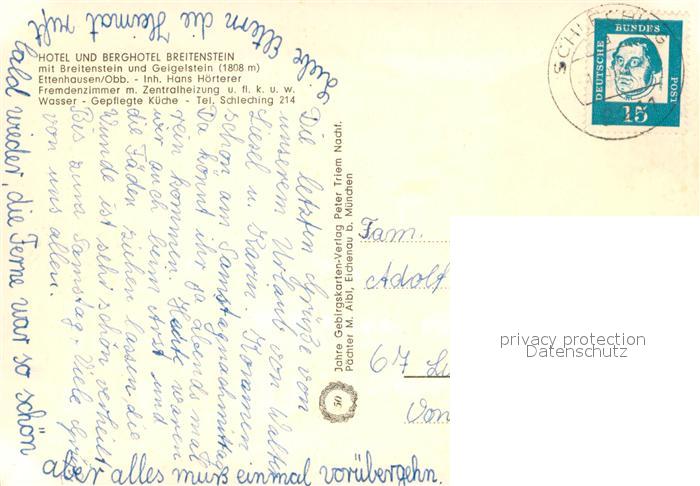 HOTEL UND BERGHOTEL BREITENSTEIN
mit Breitenstein und Geigelstein (1808 m)
Ettenhausen/Obb. - Inh. Hans Hörterer
Fremdenzimmer m. Zentralheizung u. fl. k. u. w.
Wasser - Gepflegte Küche - Tel. Schleching 214
Liebe Eltern die Heimat ruft
bald wieder, die Ferne war so schön
aber alles muß einmal vorübergehn.
Die letzten Grüße von
unserem Urlaub von Walter
Liesel u. Karin. Kommen
schon am Samstagnachmittag
Da könnt ihr ja Abends mal
rein kommen. Heute waren
wir auch beim Arzt und
die Fäden ziehen lassen, die
Wunde ist sehr schön verheilt.
Bis zum Samstag. Viele Grüße
von uns allen.
Jahre Gebirgskarten-Verlag Peter Triem Nachf.
Pächter M. Aibl, Eichenau b. München
50
SCHLECHING
DEUTSCHE BUNDESPOST
15
Fam.
Adolf
67 Lu
Von
privacy protection
Datenschutz